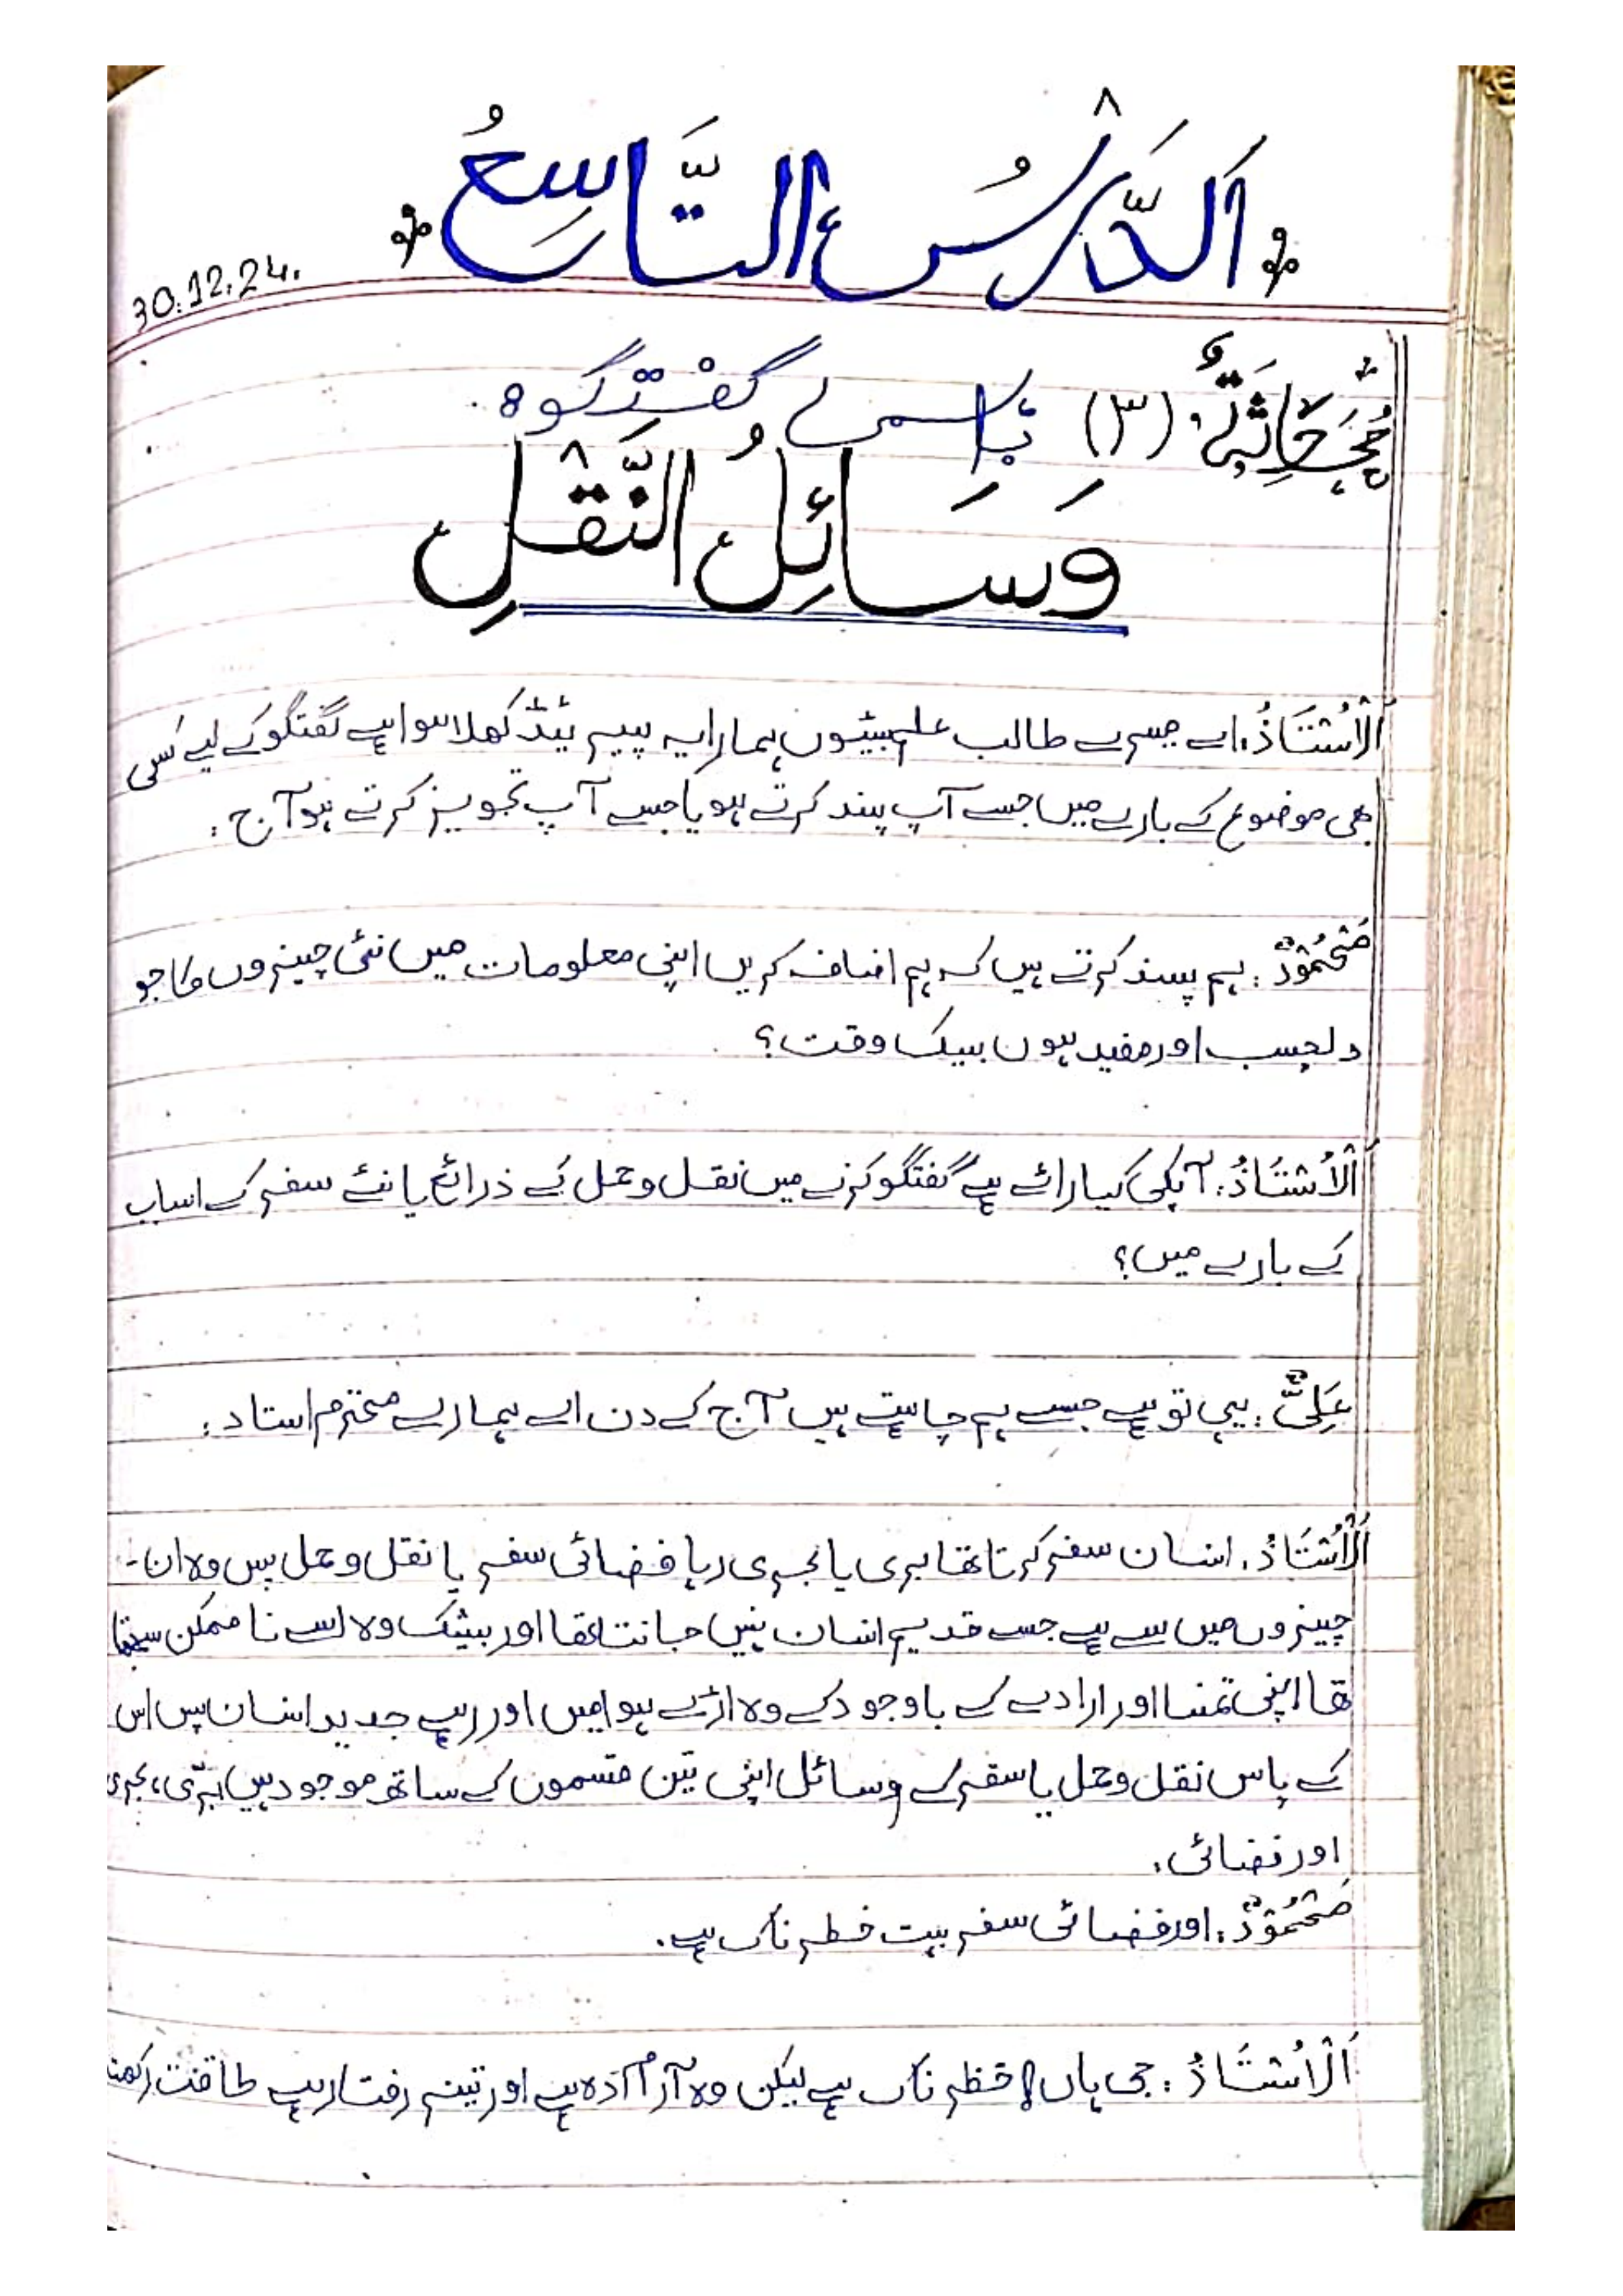 اَلدَّرْسُ التَّاسِعُ
30.12.24.
مُحَادَثَةٌ (٣) باہمی گفتگو:
وَسَائِلُ النَّقْلِ
اَلْاُسْتَاذُ: اے میرے طالب علم بیٹوں ہمارا یہ پیریڈ کھلا ہوا ہے گفتگو کے لیے کسی
بھی موضوع کے بارے میں جسے آپ پسند کرتے ہو یا جسے آپ تجویز کرتے ہو آج:
مَحْمُوْدٌ: ہم پسند کرتے ہیں کہ ہم اضافہ کریں اپنی معلومات میں نئی چیزوں کا جو
دلچسپ اور مفید ہوں بیک وقت؟
اَلْاُسْتَاذُ: آپکی کیا رائے ہے گفتگو کرنے میں نقل وحمل کے ذرائع یا نئے سفر کے اسباب
کے بارے میں؟
عَلِیٌّ: یہی تو ہے جسے ہم چاہتے ہیں آج کے دن اے ہمارے محترم استاد:
اَلْاُسْتَاذُ: انسان سفر کرتا تھا بری یا بحری رہا فضائی سفر یا نقل وحمل پس وہ ان-
چیزوں میں سے ہے جسے قدیم انسان نہیں جانتا تھا اور بیشک وہ اسے نا ممکن سمجھتا
تھا اپنی تمنا اور ارادے کے باوجود کے وہ اڑے ہوا میں اور رہے جدید انسان پس اس
کے پاس نقل وحمل یا سفر کے وسائل اپنی تین قسموں کے ساتھ موجود ہیں بَرّی، بحری
اور فضائی.
مَحْمُوْدٌ: اور فضائی سفر بہت خطرناک ہے.
اَلْاُسْتَاذُ: جی ہاں! خطرناک ہے لیکن وہ آرام دہ ہے اور تیز رفتار ہے طاقت رکھتا